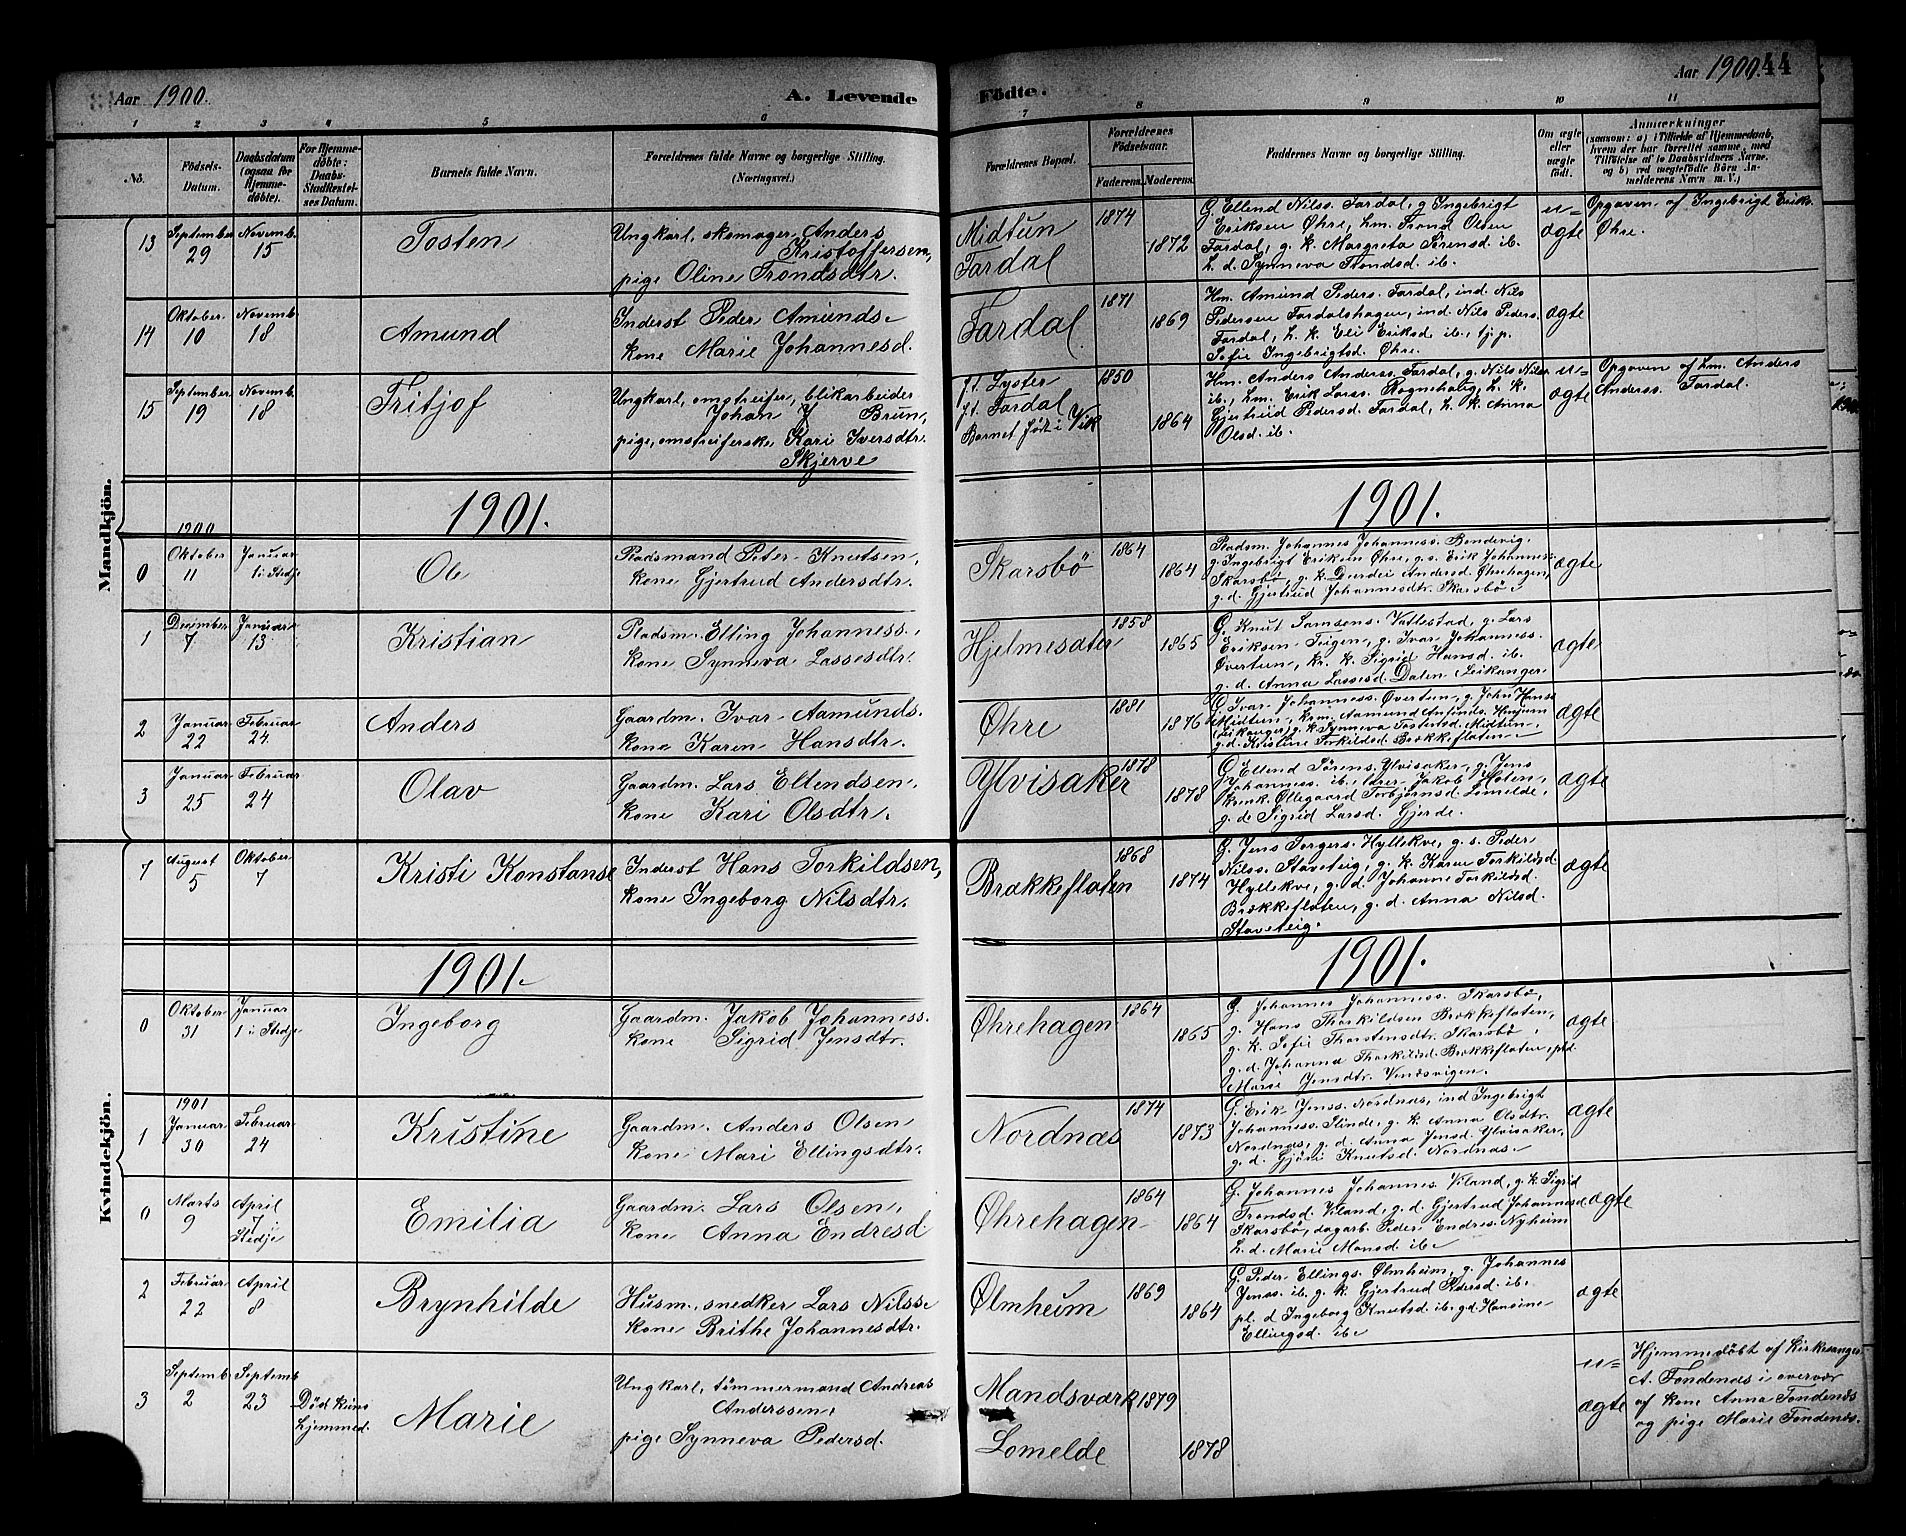 Aar 1900.
A. Levende Födte.
Aar 1900. 44
1 2 3 4 5 6 7 8 9 10 11
No.
Födsels-Datum.
Daabsdatum (ogsaa for Hjemme-döbte).
For Hjemme-döbte: Daabs-Stadfæstel-ses Datum.
Barnets fulde Navn.
Forældrenes fulde Navne og borgerlige Stilling. (Næringsvei.)
Forældrenes Bopæl.
Forældrenes Födselsaar.
Faderens. Moderens.
Faddernes Navne og borgerlige Stilling.
Om ægte eller uægte födt.
Anmærkninger
(saasom: a) i Tilfælde af Hjemmedaab, hvem der har forrettet samme, med Tilföielse af to Daabsvidners Navne. og b) ved uægtefödte Börn An-melderens Navn m. V.)
Mandkjön.
13 September 29 Novemb. 15 Tosten
Ungkarl, skomager Anders
Kristoffersen,
pige Oline Trondsdtr.
Midtun
Fardal
1874 1872
G. Ellend Nilss. Fardal, g Ingebrigt
Eriksen Øhre, hm. Trond Olsen
Fardal, g. k. Margreta Sörensd. ib.
h. d. Synneva Trondsd. ib.
u=ægte
Opgaven af Ingebrigt Eriks.
Øhre.
14 Oktober 10 Novemb. 18 Amund
Inderst Peder Amunds.
kone Marie Johannesd.
Fardal
1871 1869
Hm. Amund Peders. Fardal, ind. Nils
Pedersen Fardalshagen, ind. Nils Peders.
Fardal, h. k. Eli Eriksd. ib., tj. p.
Sofie Ingebrigtsd. Øhre.
ægte
15 September 19 Novemb. 18 Fritjof
Ungkarl, omstreifer, blikarbeider
Johan J. Brun,
pige, omstreiferske Kari Iversdtr.
Skjerve
f. t. Lyster
f. t. Fardal
Barnet født i Vik
1850 1864
Hm. Anders Anderss. Fardal, g. Nils Nilss
ib., hm. Erik Larss. Rognehaug, h. k.
Gjertrud Pedersd. Fardal, h. k. Anna
Olsd. ib.
u=ægte
Opgaven af hm. Anders
Anderss. Fardal.
1901. 1901.
1900
0 Oktober 11 Januar 1 i Stedje Ole
Pladsmand Peter Knutsen,
kone Gjertrud Andersdtr.
Skarsbö
1864 1864
Pladsm. Johannes Johanness. Bondevig,
g. Ingebrigt Eriksen Øhre, g. s. Erik Johanness.
Skarsbö, g. k. Durdei Andersd. Øhrehagen,
g. d. Gjertrud Johannesdtr. Skarsbö.
ægte
1 December 7 Januar 13. Kristian
Pladsm. Elling Johanness.
kone Synneva Lassesdtr.
Hjelmesæter
1858 1865
G. Knut Samsons. Vallestad, g. Lars
Eriksen Teigen, g. Ivar Johanness.
Øvertun, kr. k. Sigrid Hansd. ib.
g. d. Anna Lassesd. Dalen Leikanger.
ægte
2 Januar 22 Februar 24. Anders
Gaardm. Ivar Aamunds.
kone Karen Hansdtr.
Øhre
1881 1876
G. Ivar Johanness. Øvertun, g. John Hanse
Midtun, krm. Aamund Amunds. Henjum
(Leikanger) g. k. Synneva Tostensd. Midtun,
g. d. Kristine Torkildsd. Brækkefloten.
ægte
3 Januar 25 Februar 24 Olav
Gaardm. Lars Ellendsen,
kone Kari Olsdtr.
Ylvisaker
1878 1878
G. Ellend Sörens. Ylvisaker, g. Jens
Johanness. ib., lærer Jakob Höten,
enk. Øllegaard Torbjörnsd. Lomelde,
g. d. Sigrid Larsd. Gjerde.
ægte
Kvindekjön.
7 August 5 Oktober 7 Kristi Konstanse
Inderst Hans Torkildsen,
kone Ingeborg Nilsdtr.
Brækkefloten
1868 1874
G. Jens Torgers. Hyllekve, g. s. Peder
Nilss. Staveteig, g. k. Karen Torkildsd.
Hyllekve, g. d. Johanne Torkildsd.
Brækkefloten, g. d. Anna Nilsd.
Staveteig.
ægte
1901. 1901.
0 Oktober 31 Januar 1 i Stedje Ingeborg
Gaardm. Jakob Johanness.
kone Sigrid Jensdtr.
Øhrehagen
1864 1865
G. Johannes Johanness. Skarsbö,
g. Hans Thorkildsen Brækkefloten,
g. k. Sofie Thorstensdtr. Skarsbö,
g. d. Johanna Thorkildsd. Brækkefloten,
Marie Jensdtr. Vendsvigen.
ægte
1901
1 Januar 30 Februar 24 Kristine
Gaardm. Anders Olsen
kone Mari Ellingsdtr.
Nordnæs
1874 1873
G. Erik Jenss. Nordnæs, ind Ingebrigt
Johanness. Slinde, g. k. Anna Olsdtr.
Nordnæs, g. d. Anna Jensd. Ylvisaker,
g. d. Gjöri Knutsd. Nordnæs.
ægte
0 Marts 9 April 7 Stedje Emilia
Gaardm. Lars Olsen,
kone Anna Endresd.
Øhrehagen
1864 1864
G. Johannes Johannes. Vland, g. k. Sigrid
Trondsd. Vland, g. d. Gjertrud Johannesd.
Skarsbö, dagarb. Peder Endres. Nyheim
h. d. Marie Monsd. ib.
ægte
2 Februar 22 April 8 Brynhilde
Husm., snedker Lars Nilss.
kone Brithe Johannesdtr.
Ølmheim
1869 1864
G. Peder Ellings. Ølmheim, g. Johannes
Jenss. ib. g. k. Gjertrud Pedersd. ib.
pl. d Ingeborg Knutsd. ib. gd. Hansine
Ellingsd. ib.
ægte
3 Septemb. 2 Septemb 23 Död kuns hjemmed. Marie
Ungkarl, tömmermand Andreas
Anderssen,
pige Synneva Pedersd.
Mandsværk
Lomelde
1879 1878
u=ægte
Hjemmedöbt af kirkesanger
A. Tondenæs i overvær
af kone Anna Tondenæs
og pige Marie Tondenæs.